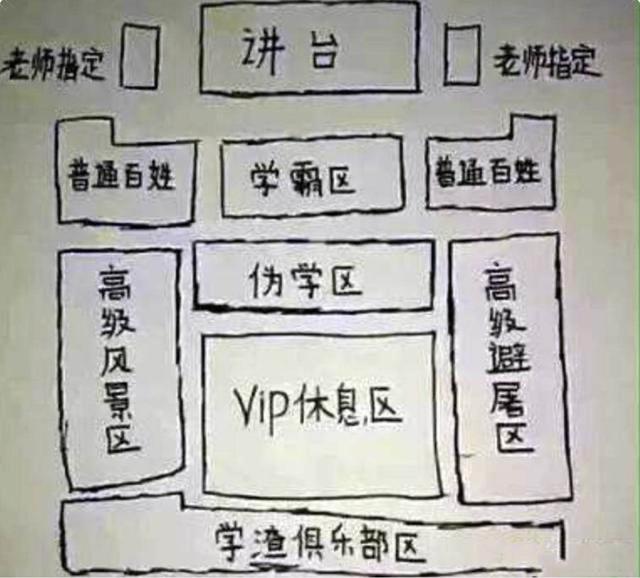 讲台
老师指定
老师指定
普通百姓
学霸区
普通百姓
高级风景区
伪学区
高级避屠区
Vip休息区
学渣俱乐部区